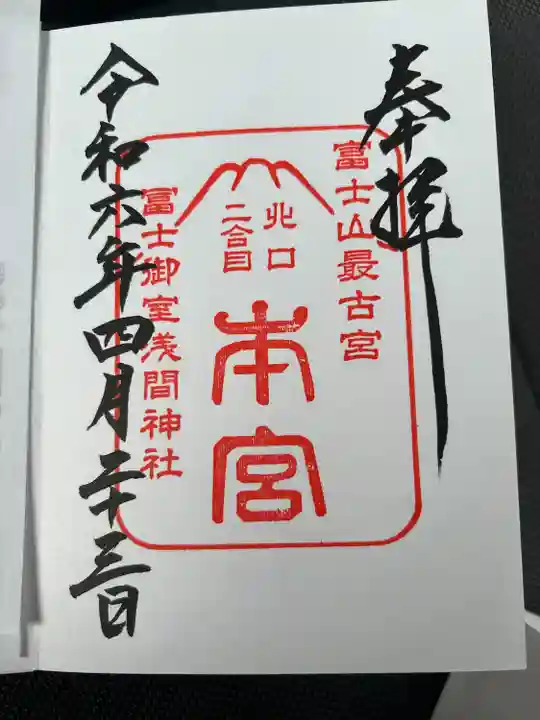 奉拝
冨士山最古宮
北口
二合目
本宮
冨士御室浅間神社
令和六年四月二十三日